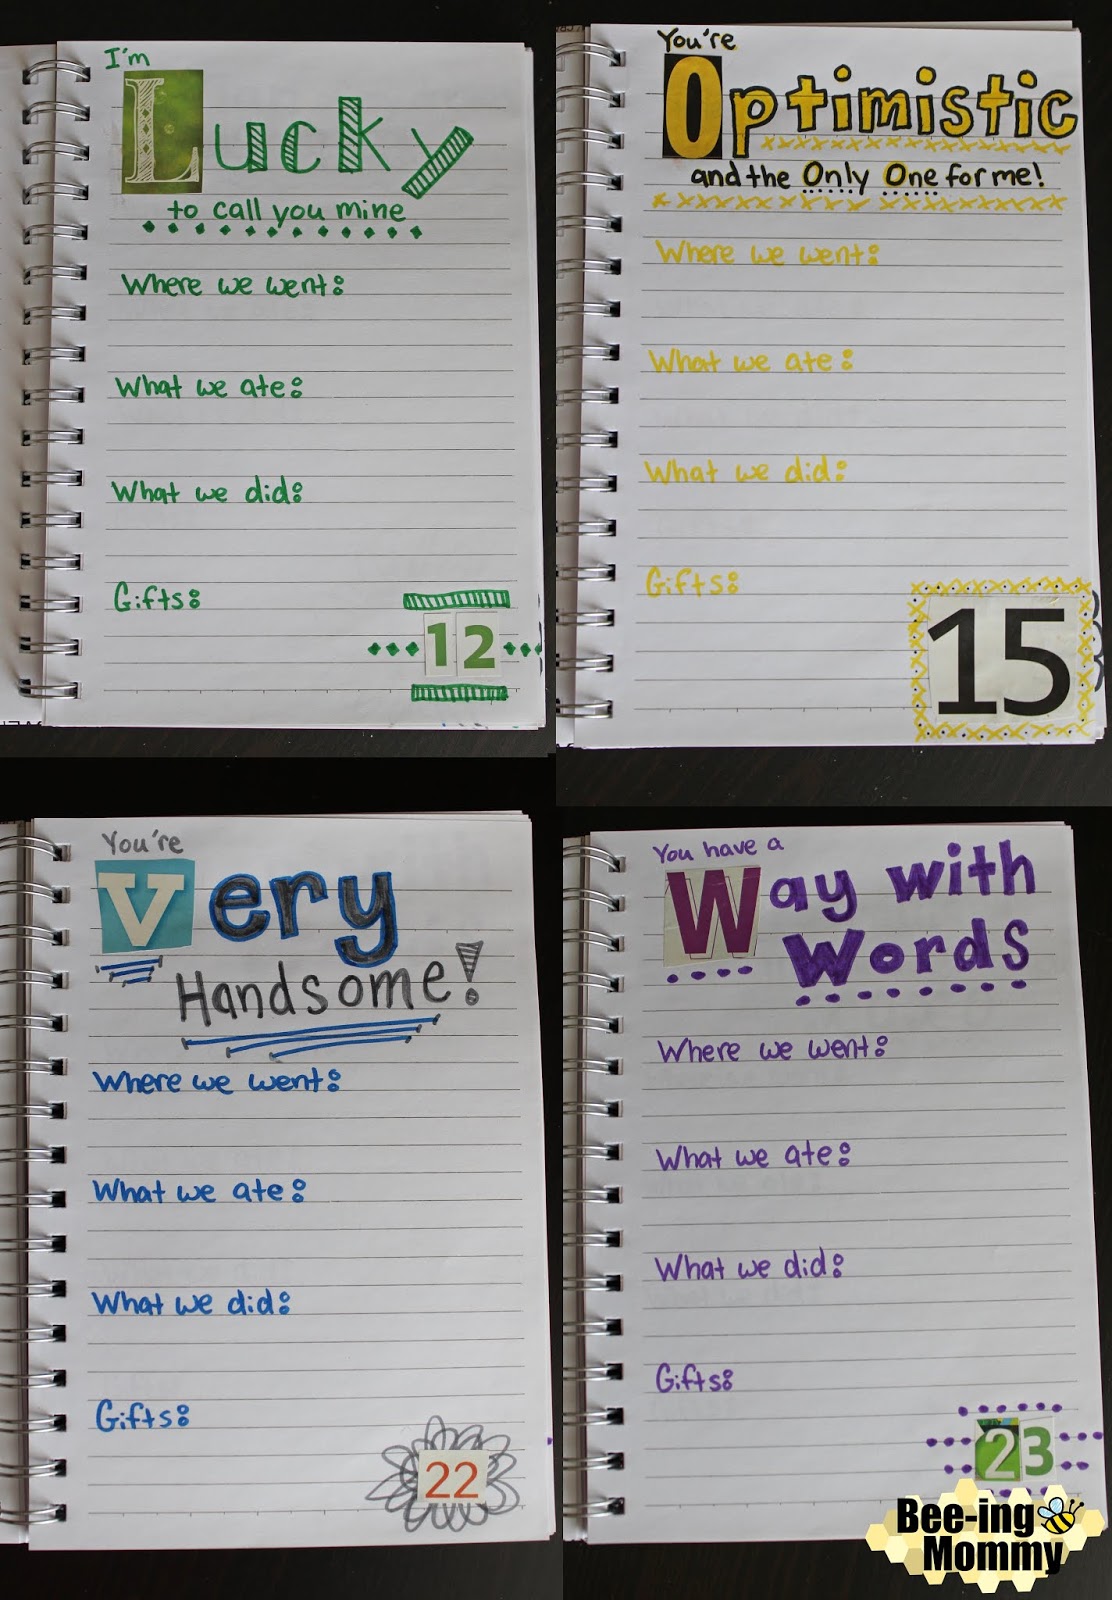 I'm
Lucky
to call you mine
Where we went:
What we ate:
What we did:
Gifts:
12
You're
Optimistic
and the Only One for me!
Where we went:
What we ate:
What we did:
Gifts:
15
You're
Very
Handsome!
Where we went:
What we ate:
What we did:
Gifts:
22
You have a
Way with
Words
Where we went:
What we ate:
What we did:
Gifts:
23
Bee-ing
Mommy